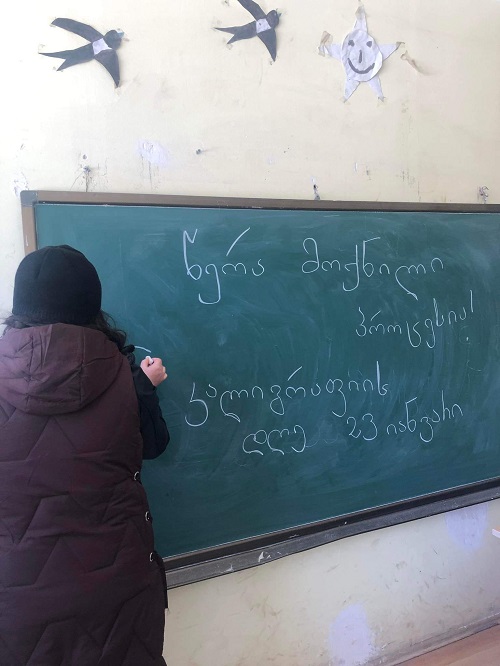 წერა მოქნილი
პროცესია!
კალიგრაფიის
დღე 23 იანვარი